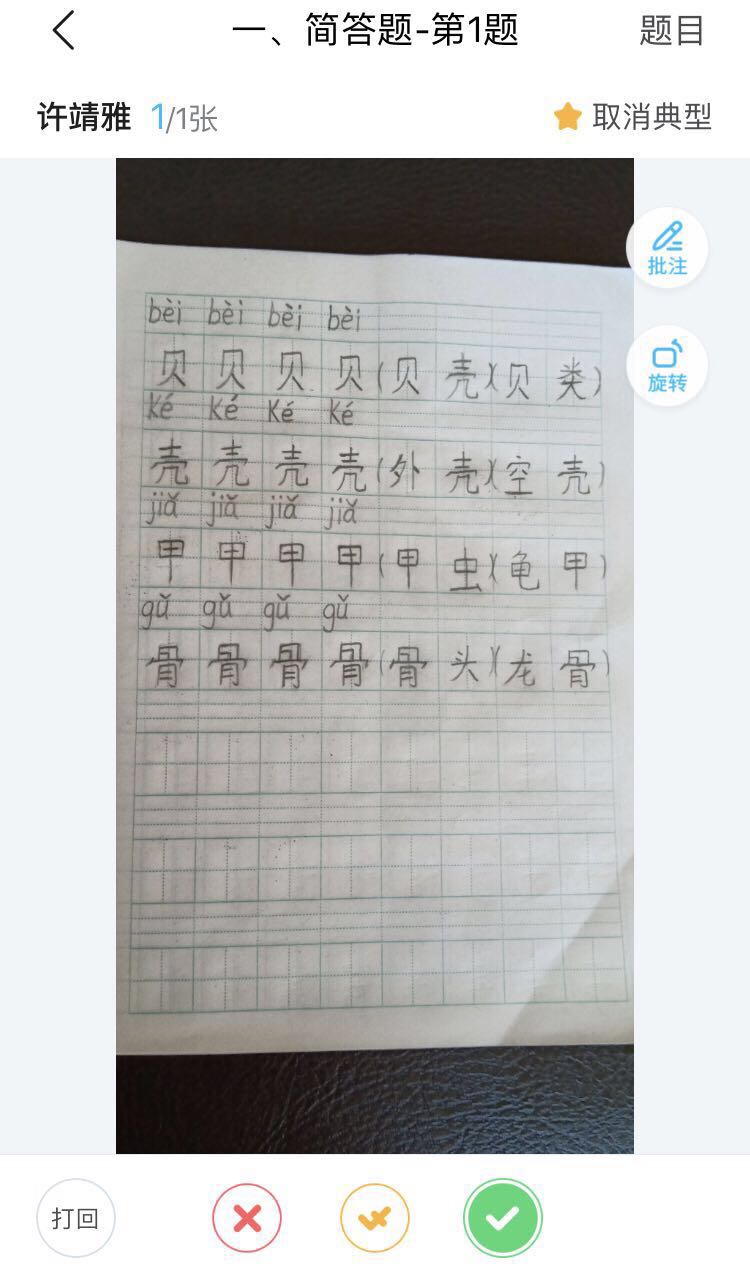 一、简答题-第1题 题目
许靖雅 1/1张 取消典型
批注
旋转
bèi bèi bèi bèi
贝 贝 贝 贝(贝 壳)(贝 类)
ké ké ké ké
壳 壳 壳 壳(外 壳)(空 壳)
jiǎ jiǎ jiǎ jiǎ
甲 甲 甲 甲(甲 虫)(龟 甲)
gǔ gǔ gǔ gǔ
骨 骨 骨 骨(骨 头)(龙 骨)
打回